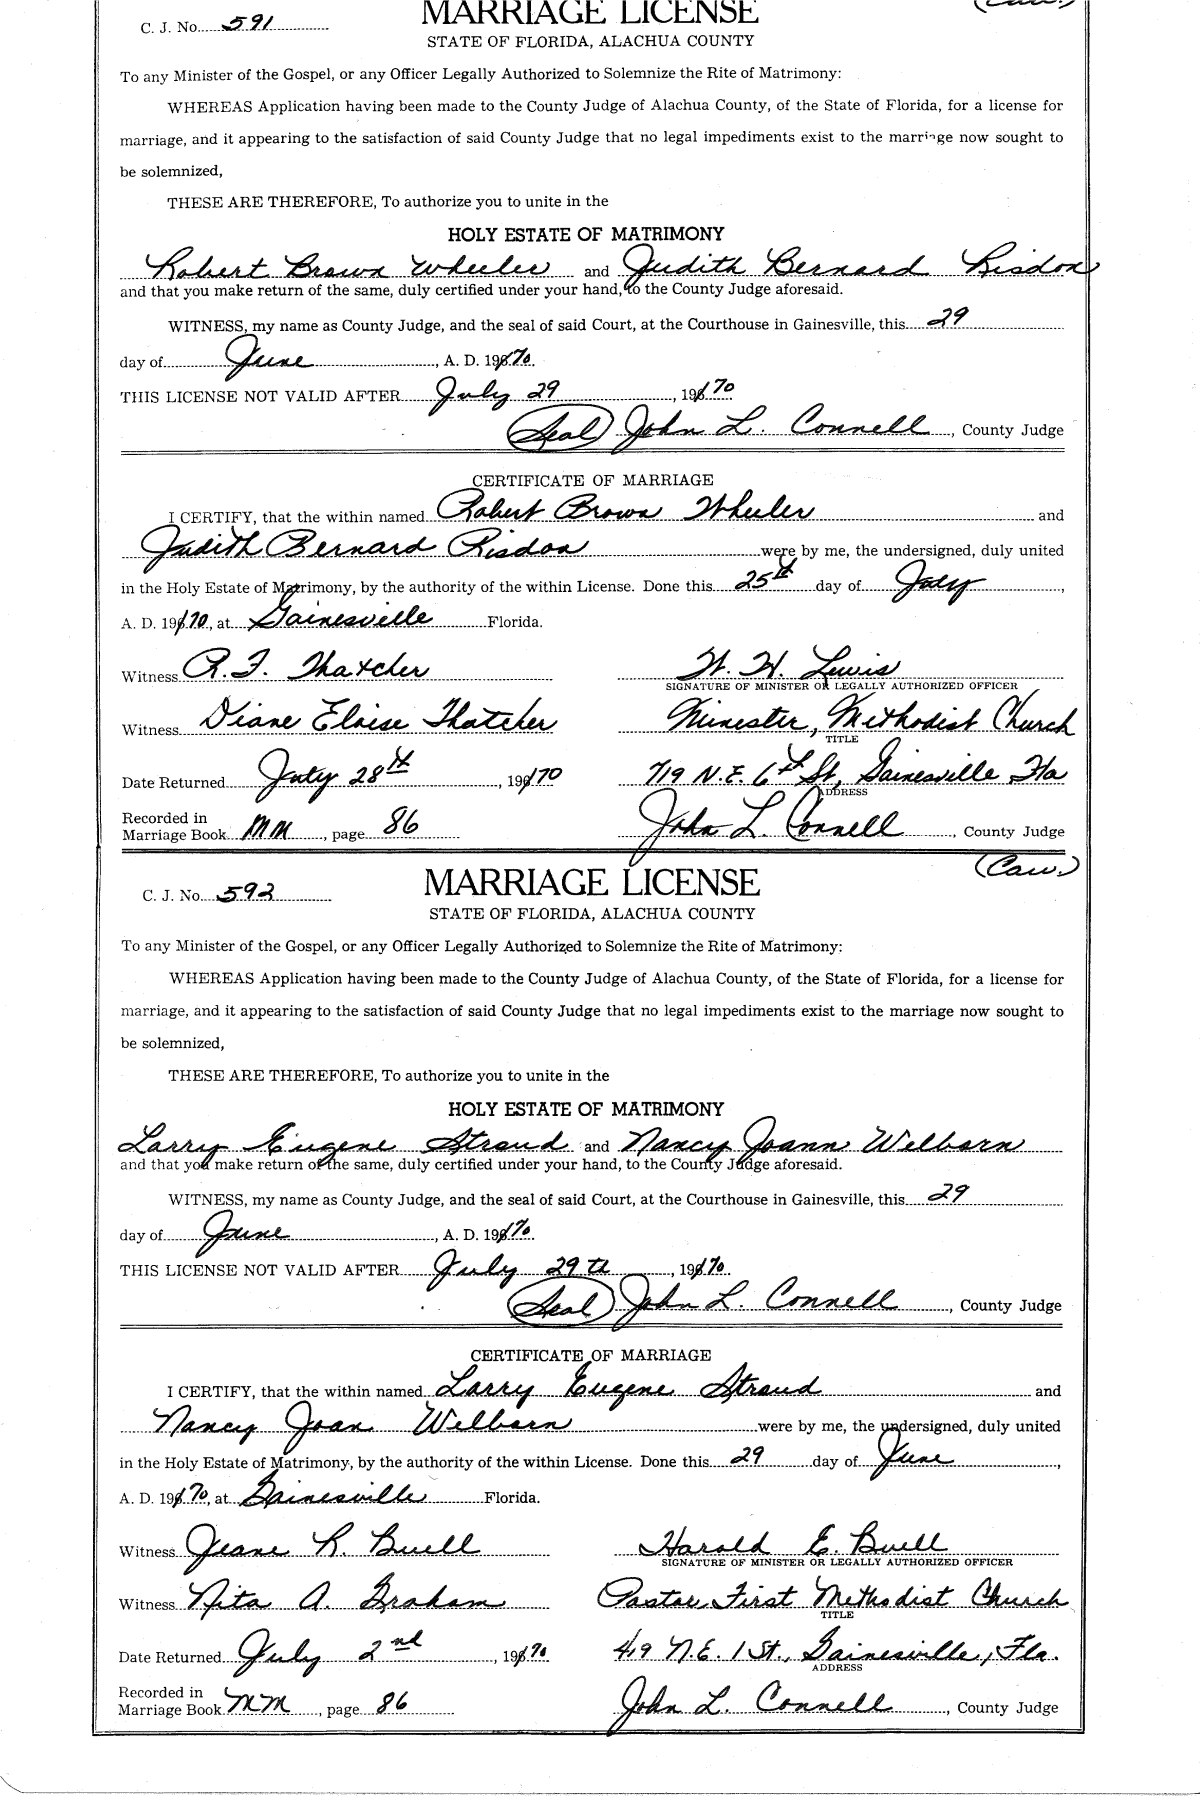 MARRIAGE LICENSE
C. J. No. 591
STATE OF FLORIDA, ALACHUA COUNTY
To any Minister of the Gospel, or any Officer Legally Authorized to Solemnize the Rite of Matrimony:
WHEREAS Application having been made to the County Judge of Alachua County, of the State of Florida, for a license for
marriage, and it appearing to the satisfaction of said County Judge that no legal impediments exist to the marriage now sought to
be solemnized,
THESE ARE THEREFORE, To authorize you to unite in the
HOLY ESTATE OF MATRIMONY
Robert Brown Wheeler and Judith Bernard Risdon
and that you make return of the same, duly certified under your hand, to the County Judge aforesaid.
WITNESS, my name as County Judge, and the seal of said Court, at the Courthouse in Gainesville, this 29
day of June, A. D. 1970.
THIS LICENSE NOT VALID AFTER July 29, 1970
(Seal) John L. Connell, County Judge
CERTIFICATE OF MARRIAGE
I CERTIFY, that the within named Robert Brown Wheeler and
Judith Bernard Risdon were by me, the undersigned, duly united
in the Holy Estate of Matrimony, by the authority of the within License. Done this 25th day of July,
A. D. 1970, at Gainesville Florida.
Witness R. F. Thatcher W. H. Lewis
SIGNATURE OF MINISTER OR LEGALLY AUTHORIZED OFFICER
Witness Diane Eloise Thatcher Minester, Methodist Church
TITLE
Date Returned July 28th, 1970 719 N.E. 6th St, Gainesville, Fla
ADDRESS
Recorded in
Marriage Book MM, page 86 John L. Connell, County Judge
(Caw.)
C. J. No. 592 MARRIAGE LICENSE
STATE OF FLORIDA, ALACHUA COUNTY
To any Minister of the Gospel, or any Officer Legally Authorized to Solemnize the Rite of Matrimony:
WHEREAS Application having been made to the County Judge of Alachua County, of the State of Florida, for a license for
marriage, and it appearing to the satisfaction of said County Judge that no legal impediments exist to the marriage now sought to
be solemnized,
THESE ARE THEREFORE, To authorize you to unite in the
HOLY ESTATE OF MATRIMONY
Larry Eugene Stroud and Nancy Joann Welborn
and that you make return of the same, duly certified under your hand, to the County Judge aforesaid.
WITNESS, my name as County Judge, and the seal of said Court, at the Courthouse in Gainesville, this 29
day of June, A. D. 1970.
THIS LICENSE NOT VALID AFTER July 29th, 1970
(Seal) John L. Connell, County Judge
CERTIFICATE OF MARRIAGE
I CERTIFY, that the within named Larry Eugene Stroud and
Nancy Joan Welborn were by me, the undersigned, duly united
in the Holy Estate of Matrimony, by the authority of the within License. Done this 29 day of June,
A. D. 1970, at Gainesville Florida.
Witness Jeane R. Buell Harold E. Buell
SIGNATURE OF MINISTER OR LEGALLY AUTHORIZED OFFICER
Witness Nita A. Graham Pastor, First Methodist Church
TITLE
Date Returned July 2nd, 1970 419 N.E. 1 St., Gainesville, Fla.
ADDRESS
Recorded in
Marriage Book MM, page 86 John L. Connell, County Judge